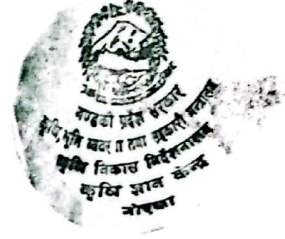 गण्डकी प्रदेश सरकार
कृषि भूमि व्यवस्था तथा सहकारी मन्त्रालय
कृषि विकास निर्देशनालय
कृषि ज्ञान केन्द्र
गोरखा